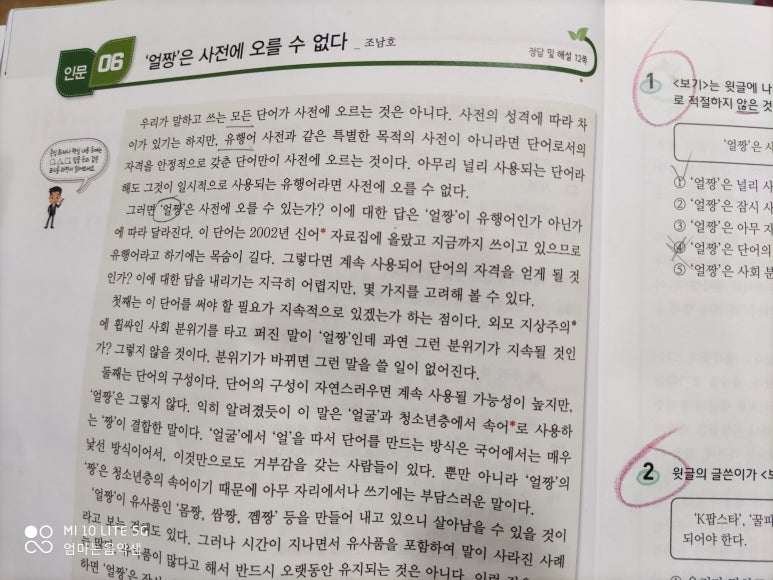 인문 06 '얼짱'은 사전에 오를 수 없다 _ 조남호
정답 및 해설 12쪽
우리가 말하고 쓰는 모든 단어가 사전에 오르는 것은 아니다. 사전의 성격에 따라 차
이가 있기는 하지만, 유행어 사전과 같은 특별한 목적의 사전이 아니라면 단어로서의
자격을 안정적으로 갖춘 단어만이 사전에 오르는 것이다. 아무리 널리 사용되는 단어라
해도 그것이 일시적으로 사용되는 유행어라면 사전에 오를 수 없다.
그러면 '얼짱'은 사전에 오를 수 있는가? 이에 대한 답은 '얼짱'이 유행어인가 아닌가
에 따라 달라진다. 이 단어는 2002년 신어* 자료집에 올랐고 지금까지 쓰이고 있으므로
유행어라고 하기에는 목숨이 길다. 그렇다면 계속 사용되어 단어의 자격을 얻게 될 것
인가? 이에 대한 답을 내리기는 지극히 어렵지만, 몇 가지를 고려해 볼 수 있다.
첫째는 이 단어를 써야 할 필요가 지속적으로 있겠는가 하는 점이다. 외모 지상주의*
에 휩싸인 사회 분위기를 타고 퍼진 말이 '얼짱'인데 과연 그런 분위기가 지속될 것인
가? 그렇지 않을 것이다. 분위기가 바뀌면 그런 말을 쓸 일이 없어진다.
둘째는 단어의 구성이다. 단어의 구성이 자연스러우면 계속 사용될 가능성이 높지만,
'얼짱'은 그렇지 않다. 익히 알려졌듯이 이 말은 '얼굴'과 청소년층에서 속어*로 사용하
는 '짱'이 결합한 말이다. '얼굴'에서 '얼'을 따서 단어를 만드는 방식은 국어에서는 매우
낯선 방식이어서, 이것만으로도 거부감을 갖는 사람들이 있다. 뿐만 아니라 '얼짱'의
'짱'은 청소년층의 속어이기 때문에 아무 자리에서나 쓰기에는 부담스러운 말이다.
'얼짱'이 유사품인 '몸짱, 쌈짱, 겜짱' 등을 만들어 내고 있으니 살아남을 수 있을 것이
라고 보는 도 있다. 그러나 시간이 지나면서 유사품을 포함하여 말이 사라진 사례
품이 많다고 해서 반드시 오랫동안 유지되는 것은 아니다.
하면 '얼짱'은
1 <보기>는 윗글에 나
로 적절하지 않은 것
'얼짱'은 사
① '얼짱'은 널리 사
② '얼짱'은 잠시 사
③ '얼짱'은 아무 자
④ '얼짱'은 단어의
⑤ '얼짱'은 사회 분
2 윗글의 글쓴이가 <보
'K팝스타', '꿀파
되어야 한다.
MI 10 LITE 5G
엄마는음악색